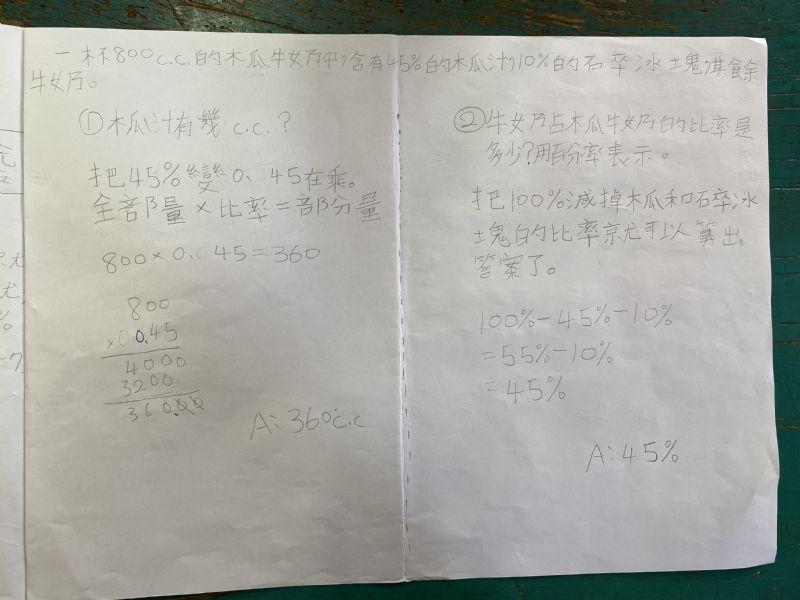 一杯800c.c.的木瓜牛奶中,含有45%的木瓜汁,10%的碎冰塊,其餘
牛奶。
①木瓜汁有幾c.c.?
把45%變0.45在乘。
全部量×比率=部分量
800×0.45=360
800
×0.45
4000
3200
360.00
A:360c.c
②牛奶占木瓜牛奶的比率是
多少?用百分率表示。
把100%減掉木瓜和碎冰
塊的比率就可以算出
答案了。
100%-45%-10%
=55%-10%
=45%
A:45%